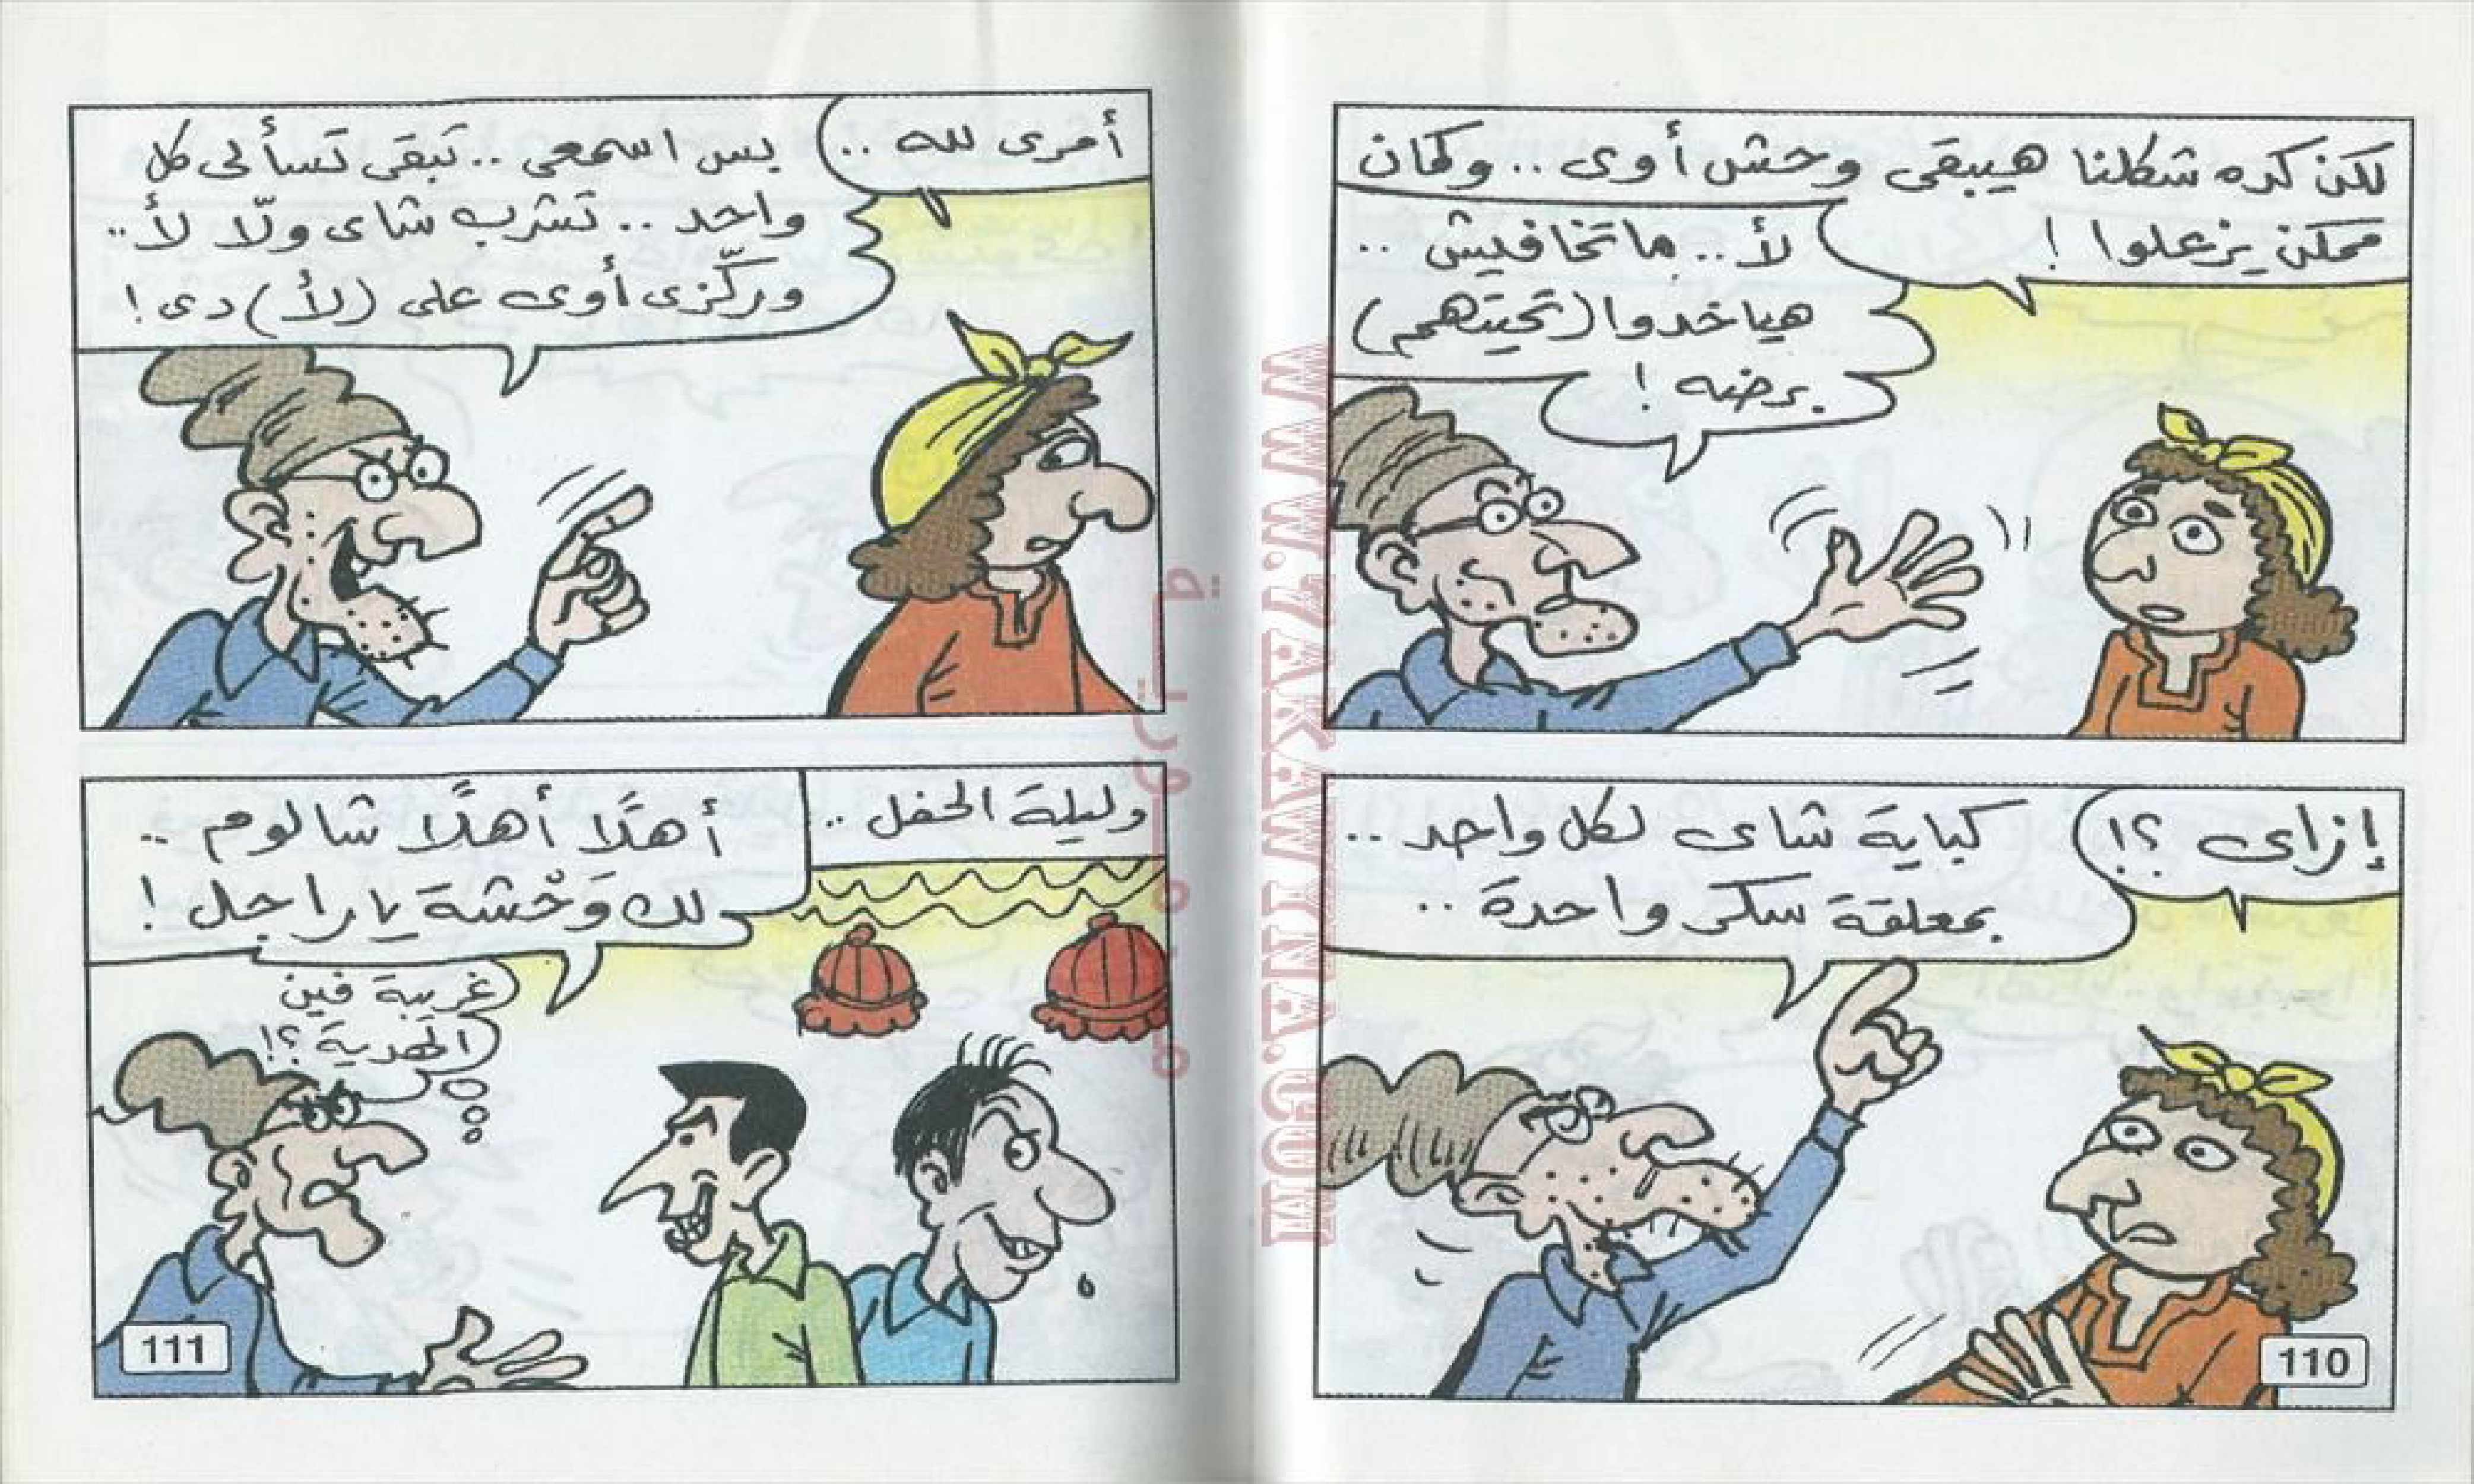 لكن كده شكلنا هيبقى وحش أوى .. وكمان
ممكن يزعلوا !
لأ .. ما تخافيش ..
هياخدوا (تحيتهم)
برضه !
إزاى ؟!
كباية شاى لكل واحد ..
بمعلقة سكر واحدة ..
110
أمرى لله ..
بس اسمعى .. تبقى تسألى كل
واحد .. تشرب شاى ولّا لأ ..
وركّزى أوى على (لأ) دى !
وليلة الحفل ..
أهلًا أهلًا شالوم ..
لك وَحْشة يا راجل !
غريبة فين
الهدية ؟!
111
WWW.ZAKAWINNA.COM